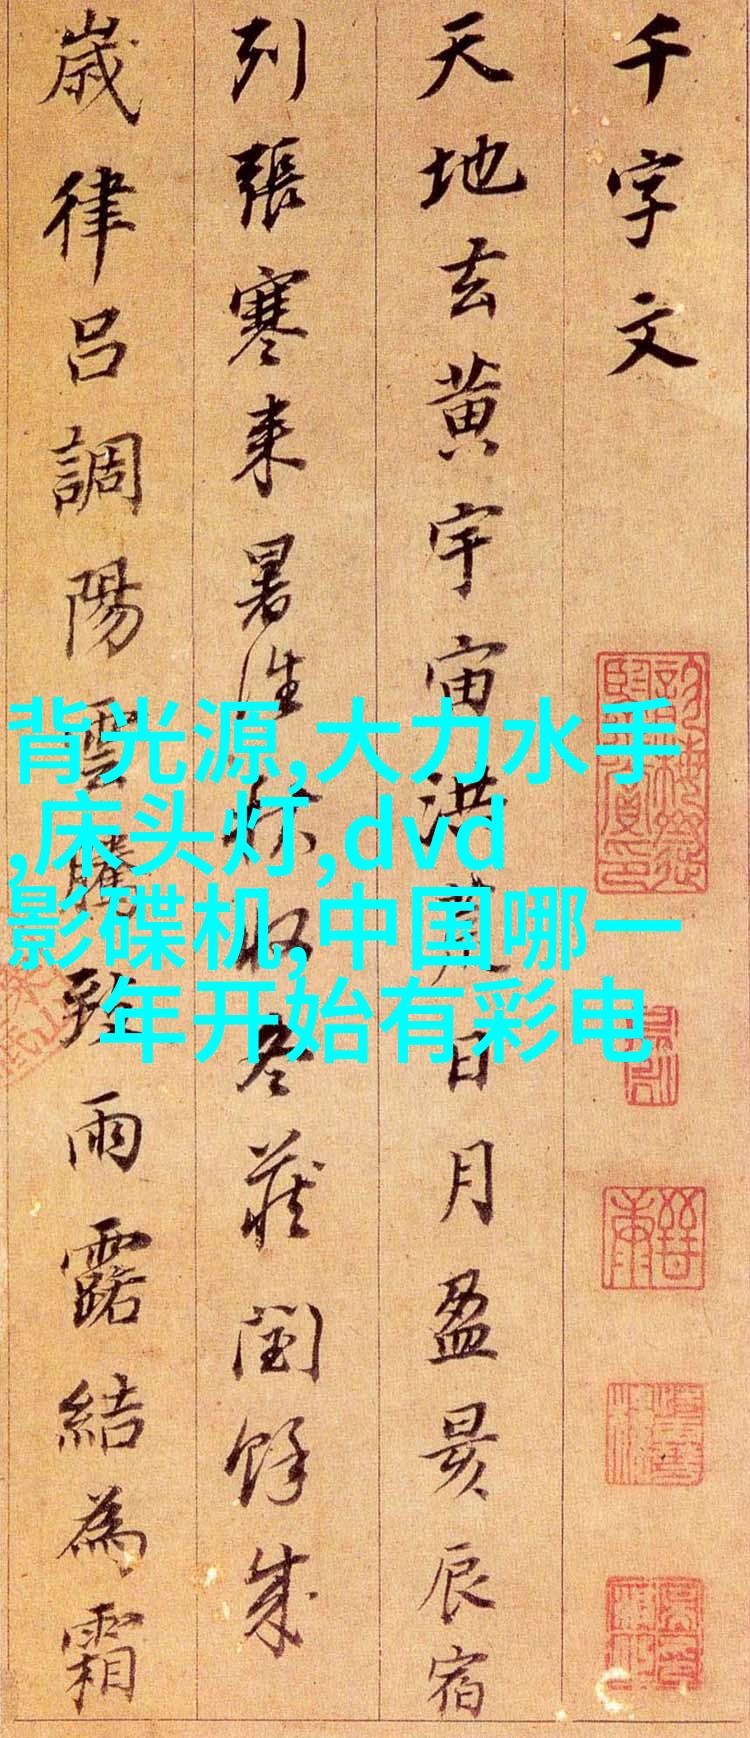 千字文
天地玄黄宇宙洪荒日月盈昃辰宿
列張寒来暑往秋收冬蔵閏餘成
歳律吕調陽雲騰致雨露結為霜
背光源,大力水手
,床头灯,dvd
影碟机,中国哪一
年开始有彩电